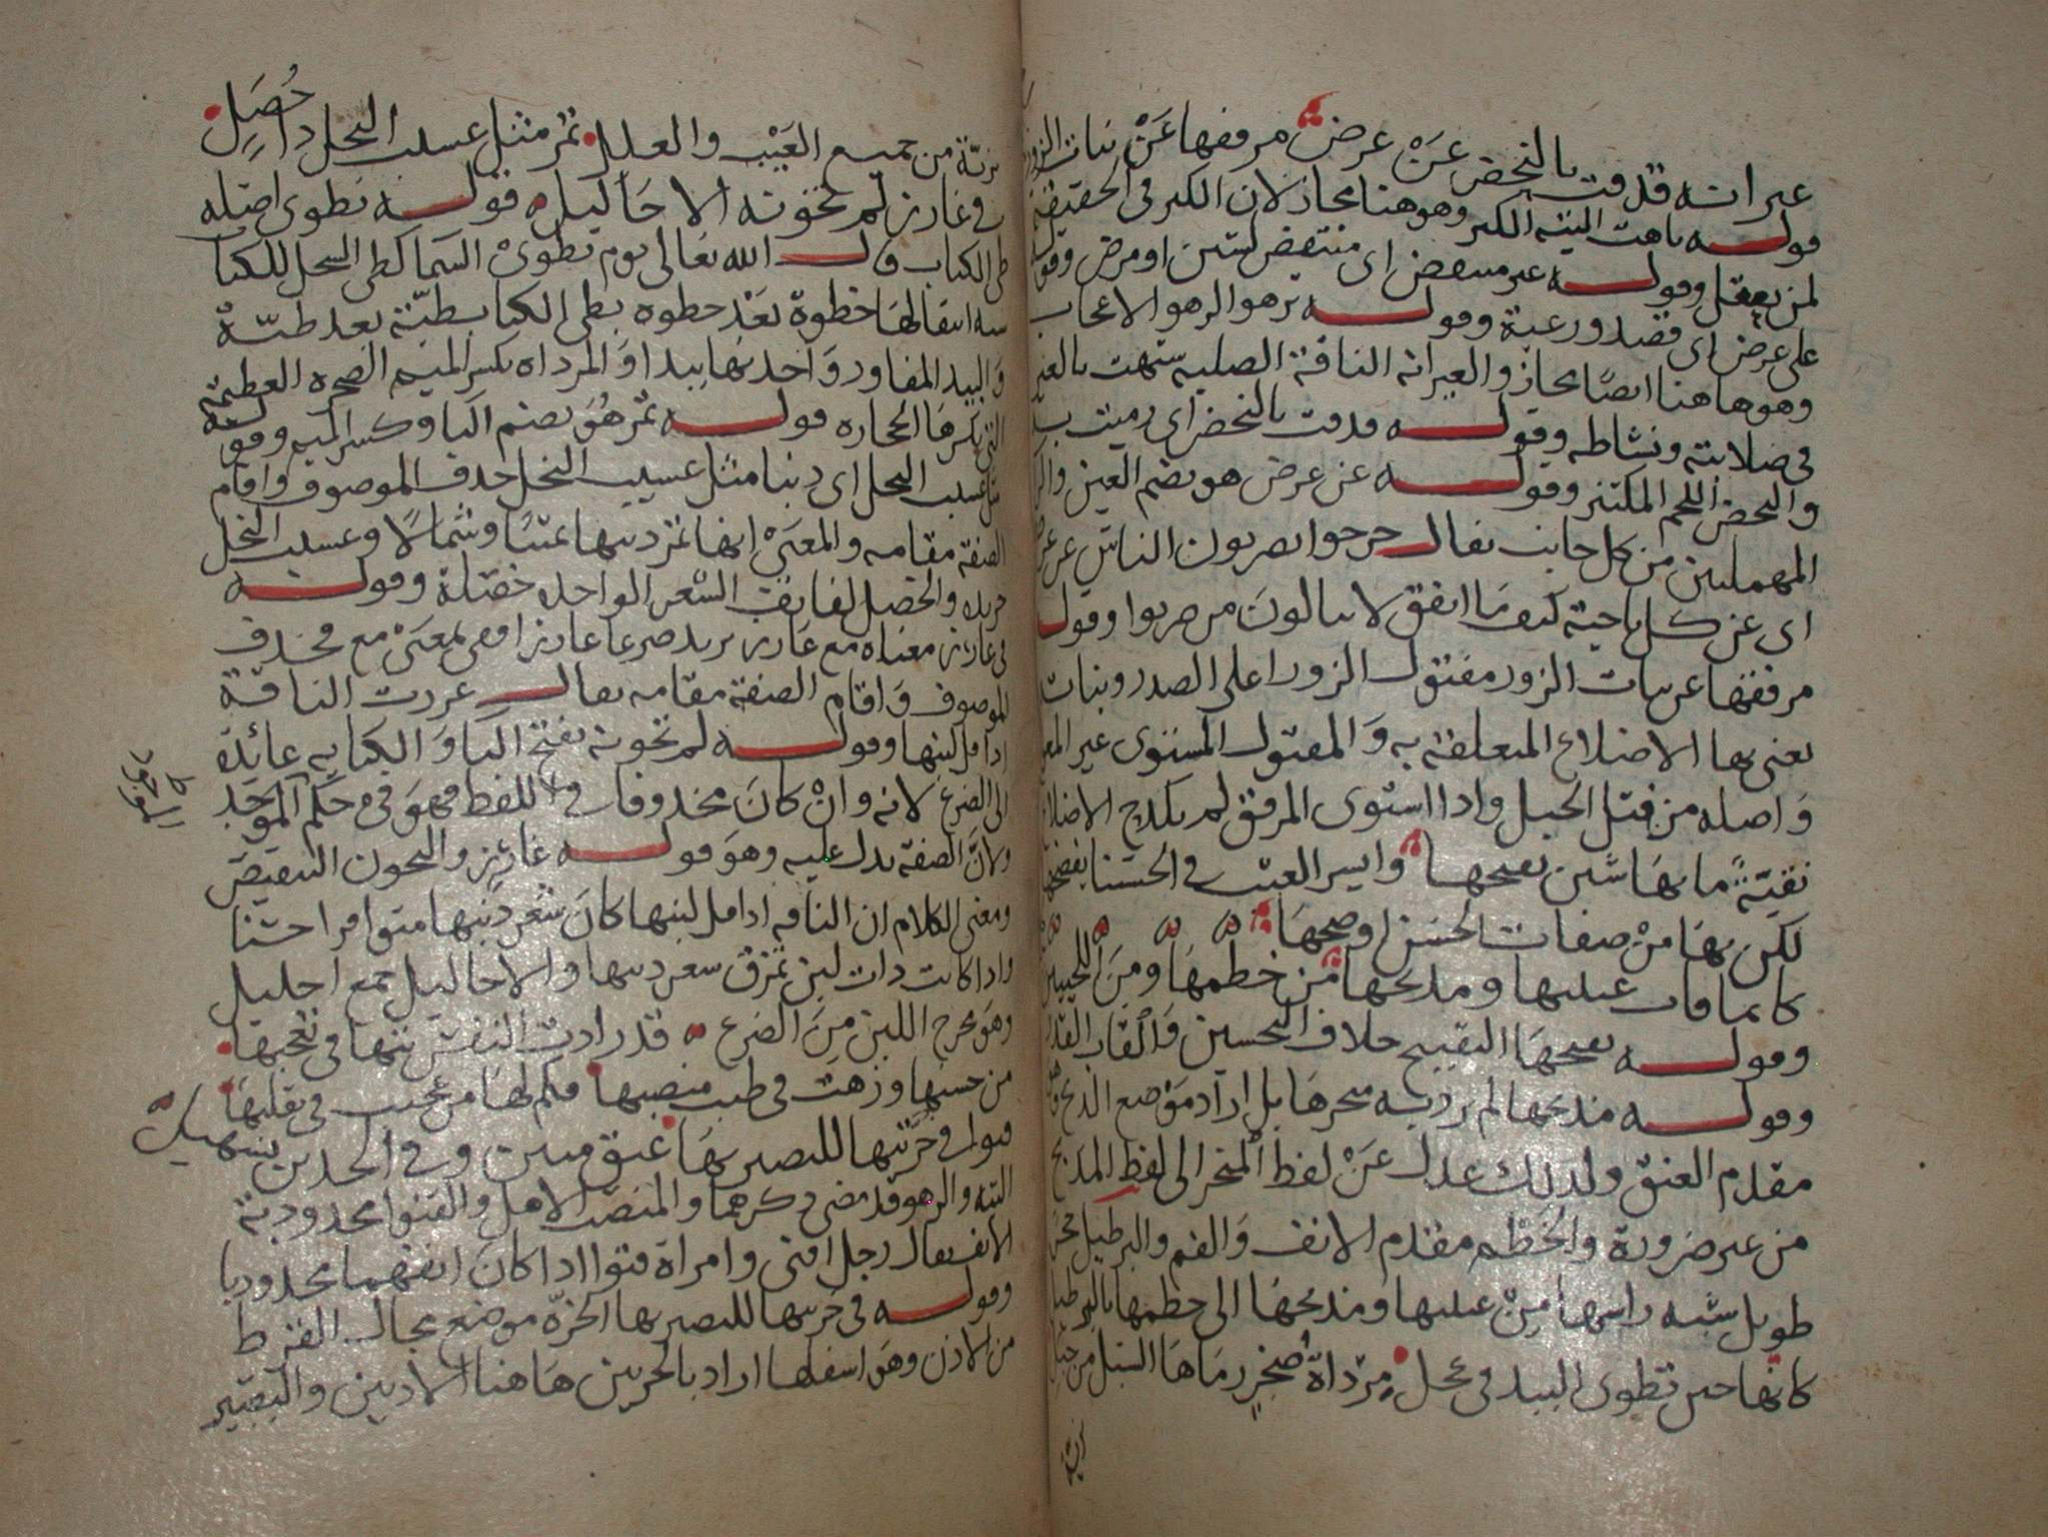 عيرانة قذفت بالنحض عن عرض مرفقها عن بنات الزور
قوله تاهت التيه الكبر وهو هنا مجاز لان الكبر في الحقيقة
لمن يعقل وقوله غير منتقض اي منتقض لسنن او مرض وقوله
على عرض اي قصد ورغبة وقوله تزهو الزهو الاعجاب
وهو هاهنا ايضا مجاز والعيرانة الناقة الصلبة شبهت بالعير
في صلابته ونشاطه وقوله قذفت بالنحض اي رميت به
والنحض اللحم المكتنز وقوله عن عرض هو بضم العين والراء
المهملتين من كل جانب يقال خرجوا يضربون الناس عن عرض
اي عن كل ناحية كيف ما اتفق لا يبالون من ضربوا وقوله
مرفقها عن بنات الزور مفتول الزور اعلى الصدر وبنات
يعني بها الاضلاع المتعلقة به والمفتول المستوى غير
واصله من فتل الحبل واذا استوى المرفق لم يكدح الاضلاع
نقية ما بها شين يقبحها وايسر العيب في الحسنا يفضحها
لكن بها من صفات الحسن اوضحها
كانما فات عينيها ومذبحها من خطمها ومن اللحيين
وقوله يقبحها التقبيح خلاف التحسين والقاب
وقوله مذبحها لم يرد به منحرها بل اراد موضع الذبح وهو
مقدم العنق ولذلك عدل عن لفظ المنحر الى لفظ المذبح
من غير ضرورة والخطم مقدم الانف والفم والبرطيل حجر
طويل شبه راسها من عينيها ومذبحها الى خطمها بالبرطيل
كانها حين تطوى البيد في عجل مرداة صخر رماها السيل من جبل
برئة من جميع العيب والعلل تمر مثل عسيب النخل ذا خصل
في غارز لم تخونه الاحاليل قوله تطوى اصله
طي الكتاب قال الله تعالى يوم نطوى السما كطي السجل للكتاب
شبه انتقالها خطوة بعد خطوة بطي الكتاب طية بعد طية
والبيد المفاوز واحدتها بيدا والمرداة بكسر الميم الصخرة العظيمة
التي يكسر بها الحجارة قوله تمر هو بضم التا وكسر الميم وقوله
مثل عسيب النخل اي ذنبا مثل عسيب النخل حذف الموصوف واقام
الصفة مقامه والمعنى انها تمر ذنبها يمينا وشمالا وعسيب النخل
جريده والخصل لفائف الشعر الواحدة خصلة وقوله
في غارز معناه مع غارز يريد ضرعا غارزا ففي بمعنى مع فحذف
الموصوف واقام الصفة مقامه يقال غرزت الناقة
اذا قل لبنها وقوله لم تخونه بفتح التا والكناية عائدة
الى الضرع لانه وان كان محذوفا في اللفظ فهو في حكم الموجود
ولان الصفة تدل عليه وهو قوله غارز والتخون التنقيص
ومعنى الكلام ان الناقه اذا قل لبنها كان شعر ذنبها متوافرا حسنا
واذا كانت ذات لبن تمزق شعر ذنبها والاحاليل جمع احليل
وهو مخرج اللبن من الضرع قد زادت النفس تيها في تعجبها
من حسنها وزهت في طيب منصبها فكم لها من عجيب في تقلبها
قنوا في حرتيها للبصير بها عتق مبين وفي الخدين تسهيل
التيه والزهو قد مضى ذكرهما والمنصب الاصل والقنوا محدودبة
الانف يقال رجل اقنى وامراة قنوا اذا كان انفهما محدودبا
وقوله في حرتيها للبصير بها الحرة موضع مجال القرط
من الاذن وهو اسفلها اراد بالحرتين هاهنا الاذنين والبصير